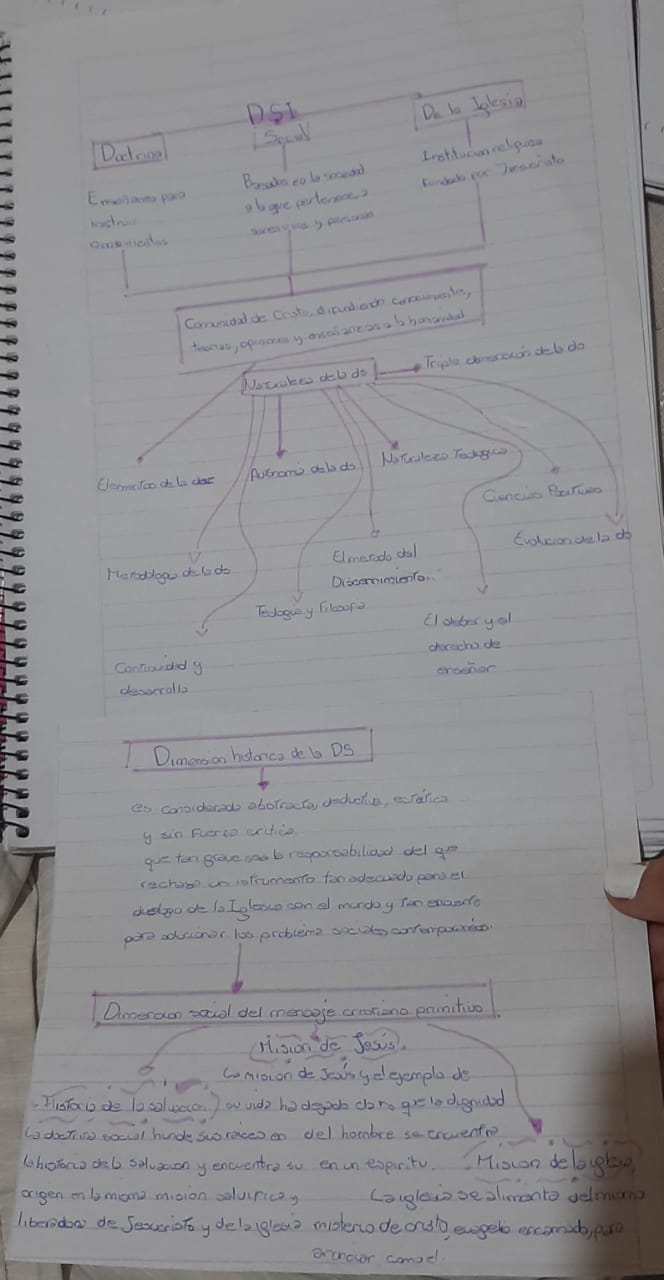 DSI
Doctrina
Social
De la Iglesia
Enseñanza para
instruir
conocimientos
Basado en la sociedad
a la que pertenece, a
y persona
Institucion religiosa
Fundada por Jesucristo
Comunidad de Cristo, difundiendo conocimientos,
teorias, opiniones y enseñanzas a la humanidad
Naturaleza de la ds
Triple dimensión de la ds
Elementos de la
Autonomia de la ds
Naturaleza Teologica
Ciencias Positivas
Evolucion de la ds
Metodologia de la ds
El metodo del
Discernimiento.
Teologia y Filosofia
El deber y el
derecho de
enseñar
Continuidad y
desarrollo
Dimension historica de la DS
es considerada abstracta, deductiva, estática
y sin fuerza critica.
que tan grave sea la responsabilidad del que
rechaza un istrumento tan adecuado para el
dialogo de la Iglesia con el mundo y tan
para solucionar los problema sociales contemporáneos.
Dimension social del mensaje cristiano primitivo.
Mision de Jesús.
La mision de Jesús y el ejemplo de
Historia de la salvacion su vida ha dejado claro que la dignidad
La doctrina social hunde sus raices en del hombre se encuentra
la historia de la salvacion y encuentra su en un espiritu. Mision de la iglesia
origen en la misma mision salvifica y La iglesia se alimenta del mismo
liberadora de Jesucristo y de la iglesia misterio de cristo, evagelio encarnado, para
anunciar